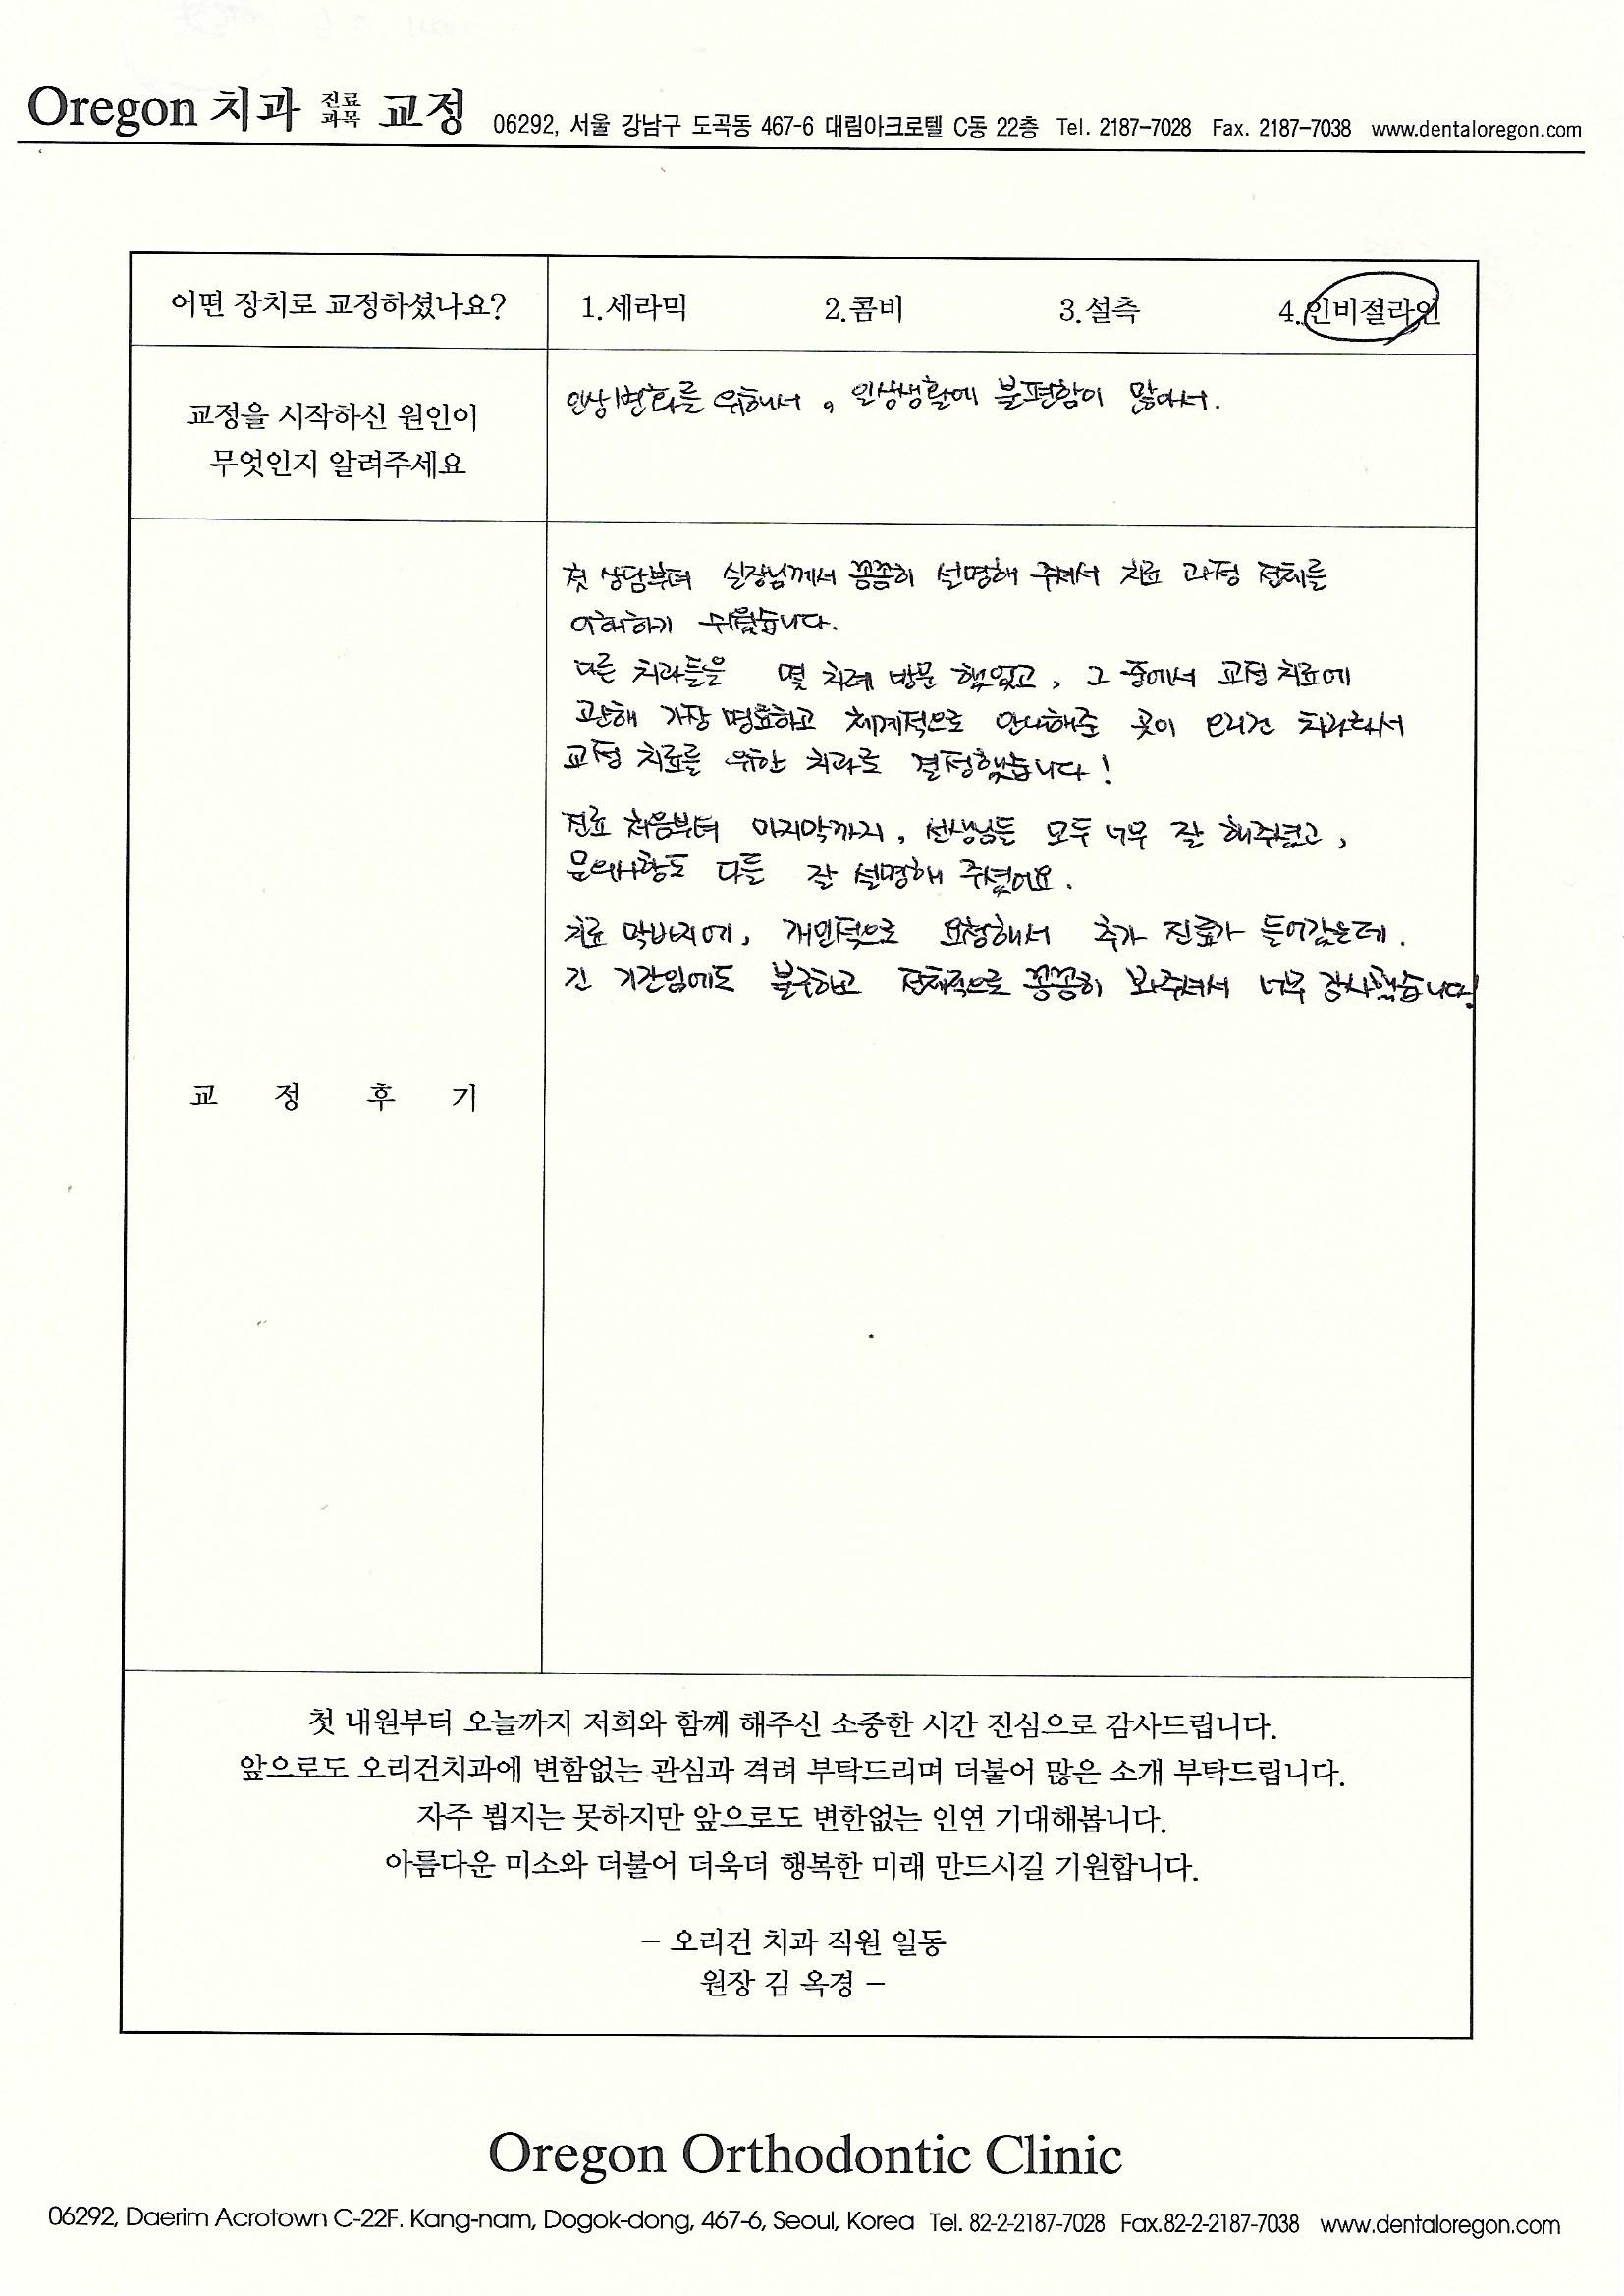 Oregon 치과 진료과목 교정 06292, 서울 강남구 도곡동 467-6 대림아크로텔 C동 22층 Tel. 2187-7028 Fax. 2187-7038 www.dentaloregon.com
어떤 장치로 교정하셨나요? 1.세라믹 2.콤비 3.설측 4.인비절라인
교정을 시작하신 원인이
무엇인지 알려주세요
인상변화를 위해서, 인상생활에 불편함이 많아서.
첫 상담부터 실장님께서 꼼꼼히 설명해 주셔서 치료 과정 전체를
이해하기 쉬웠습니다.
다른 치과들을 몇 차례 방문 했었고, 그 중에서 교정 치료에
관해 가장 명료하고 체계적으로 안내해준 곳이 오리건 치과라서
교정 치료를 위한 치과로 결정했습니다!
진료 처음부터 마지막까지, 선생님들 모두 너무 잘 해주셨고,
문의사항도 다들 잘 설명해 주셨어요.
치료 막바지에, 개인적으로 요청해서 추가 진료가 들어갔은데.
긴 기간임에도 불구하고 전체적으로 꼼꼼히 봐주셔서 너무 감사했습니다!
교 정 후 기
첫 내원부터 오늘까지 저희와 함께 해주신 소중한 시간 진심으로 감사드립니다.
앞으로도 오리건치과에 변함없는 관심과 격려 부탁드리며 더불어 많은 소개 부탁드립니다.
자주 뵙지는 못하지만 앞으로도 변한없는 인연 기대해봅니다.
아름다운 미소와 더불어 더욱더 행복한 미래 만드시길 기원합니다.
– 오리건 치과 직원 일동
원장 김 옥경 –
Oregon Orthodontic Clinic
06292, Daerim Acrotown C-22F. Kang-nam, Dogok-dong, 467-6, Seoul, Korea Tel. 82-2-2187-7028 Fax.82-2-2187-7038 www.dentaloregon.com